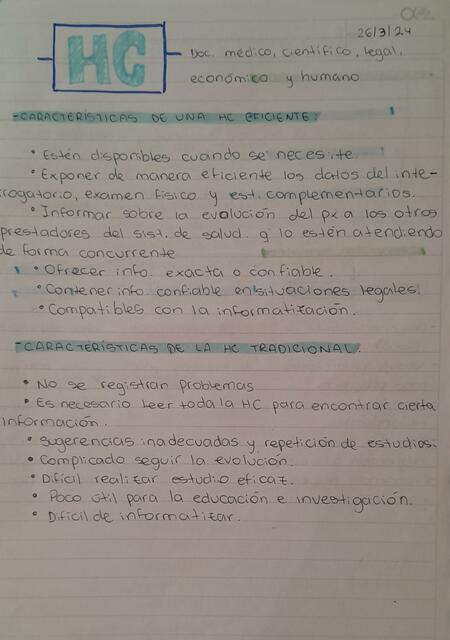 26/3/24
HC
Doc. médico, científico, legal,
económico y humano
-CARACTERÍSTICAS DE UNA HC EFICIENTE:
• Estén disponibles cuando se necesite.
• Exponer de manera eficiente los datos del inte-
rrogatorio, examen físico y est. complementarios.
• Informar sobre la evolución del px a los otros
prestadores del sist. de salud. q lo estén atendiendo
de forma concurrente
• Ofrecer info. exacta o confiable.
• Contener info confiable en situaciones legales.
• Compatibles con la informatización.
-CARACTERÍSTICAS DE LA HC TRADICIONAL.
• No se registran problemas
• Es necesario leer toda la HC para encontrar cierta
información.
• sugerencias inadecuadas y repetición de estudios.
• Complicado seguir la evolución.
• Difícil realizar estudio eficaz.
• Poco útil para la educación e investigación.
• Difícil de informatizar.